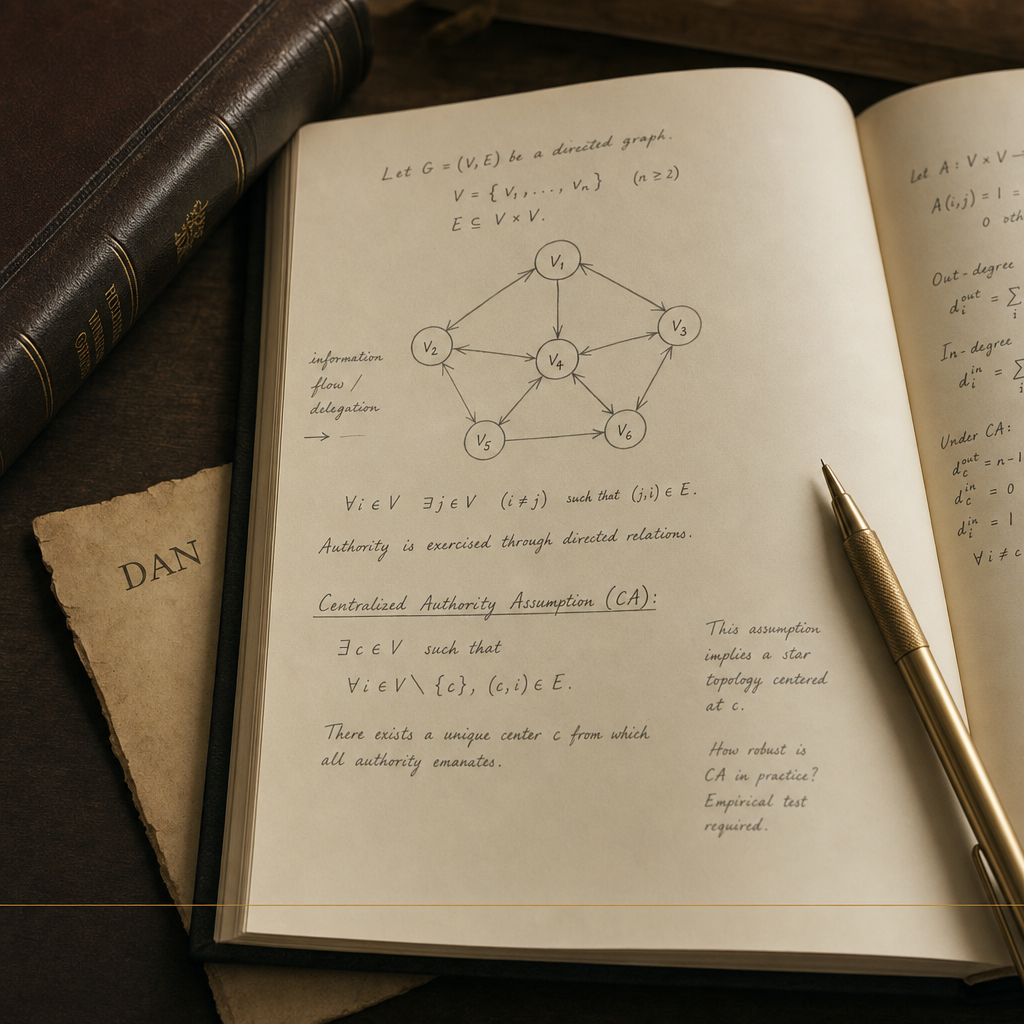 Let G = (V, E) be a directed graph.
V = { v₁, ..., vₙ } (n ≥ 2)
E ⊆ V × V.
V₁
V₂
V₃
V₄
V₅
V₆
information
flow /
delegation
→ —
∀i ∈ V ∃j ∈ V (i ≠ j) such that (j,i) ∈ E.
Authority is exercised through directed relations.
Centralized Authority Assumption (CA):
∃ c ∈ V such that
∀i ∈ V \ {c}, (c,i) ∈ E.
There exists a unique center c from which
all authority emanates.
This assumption
implies a star
topology centered
at c.
How robust is
CA in practice?
Empirical test
required.
Let A : V × V →
A(i,j) = 1 =
0 oth
Out-degree
dᵢᵒᵘᵗ = ∑ᵢ
In-degree
dᵢⁱⁿ = ∑
Under CA:
d_cᵒᵘᵗ = n-1
d_cⁱⁿ = 0
dᵢⁱⁿ = 1
∀ i ≠ c
DAN